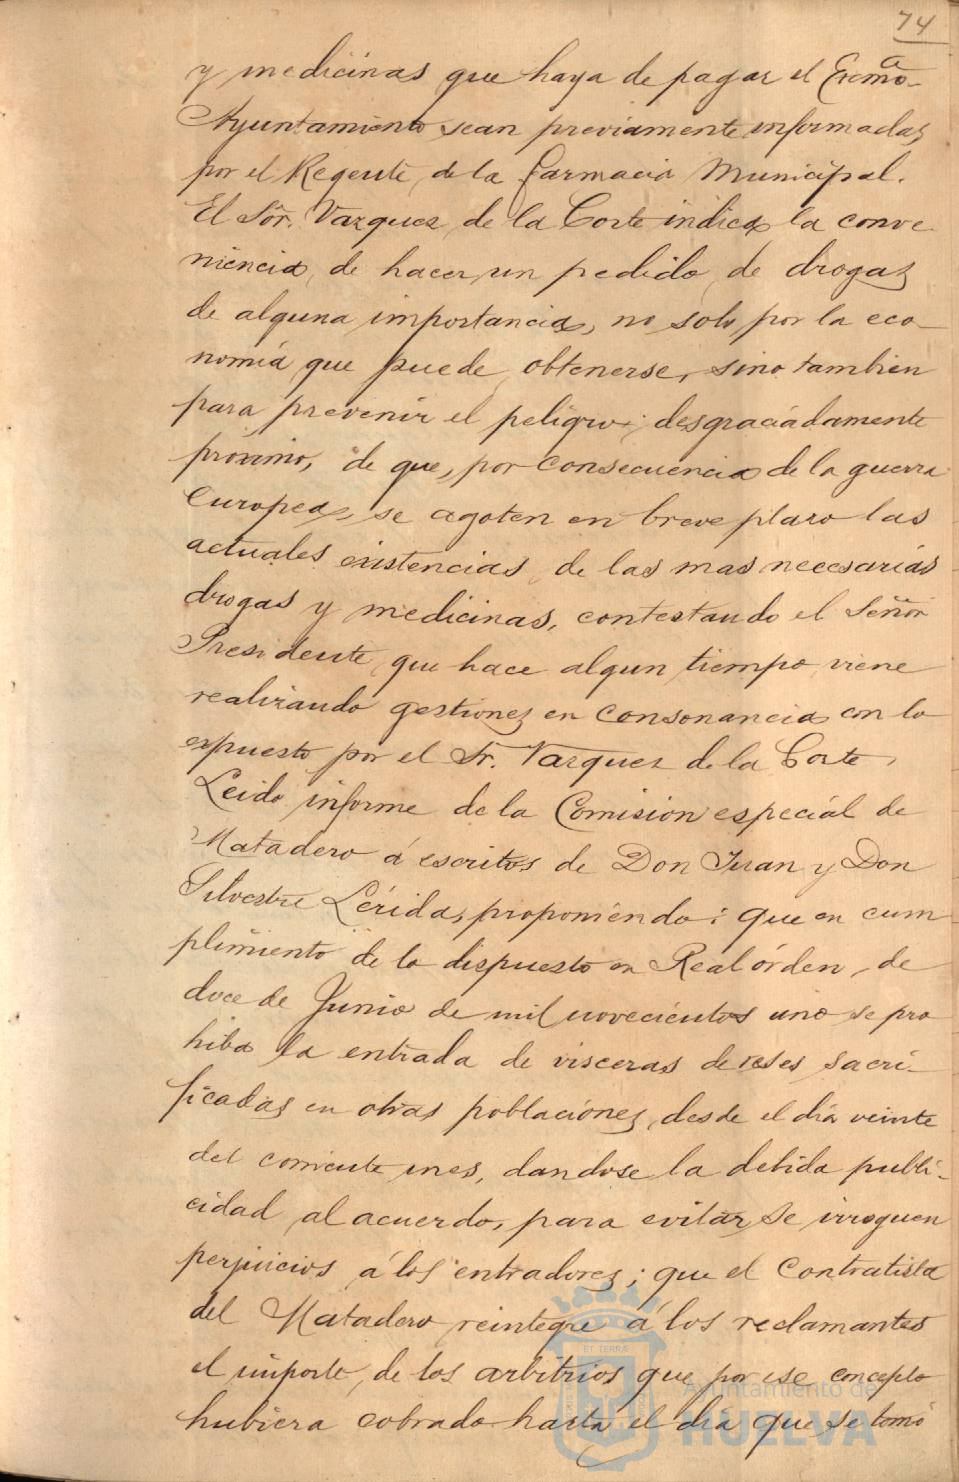 74
y medicinas que haya de pagar el Excmo.
Ayuntamiento sean previamente informadas
por el Regente de la farmacia Municipal.
El Sõr. Vazquez de la Corte indica la conve
niencia de hacer un pedido de drogas
de alguna importancia, no solo por la eco-
nomía que puede obtenerse, sino tambien
para prevenir el peligro, desgraciadamente
próximo, de que, por consecuencia de la guerra
Europea, se agoten en breve plazo las
actuales existencias de las mas necesarias
drogas y medicinas, contestando el Señor
Presidente que hace algun tiempo viene
realizando gestiones en consonancia con lo
espuesto por el Sr. Vazquez de la Corte.
Leido informe de la Comision especial de
Matadero á escritos de Don Juan y Don
Silvestre Lérida, proponiendo: que en cum
plimiento de lo dispuesto en Real órden de
doce de Junio de mil novecientos uno se pro
hiba la entrada de visceras de reses sacri-
ficadas en otras poblaciones desde el día veinte
del corriente mes, dandose la debida publi-
cidad al acuerdo, para evitar se irroguen
perjuicios á los entradores; que el Contratista
del Matadero reintegre á los reclamantes
el importe de los arbitrios que por ese concepto
hubiera cobrado hasta el día que se tomó
ET TERRÆ
Ayuntamiento de
HUELVA